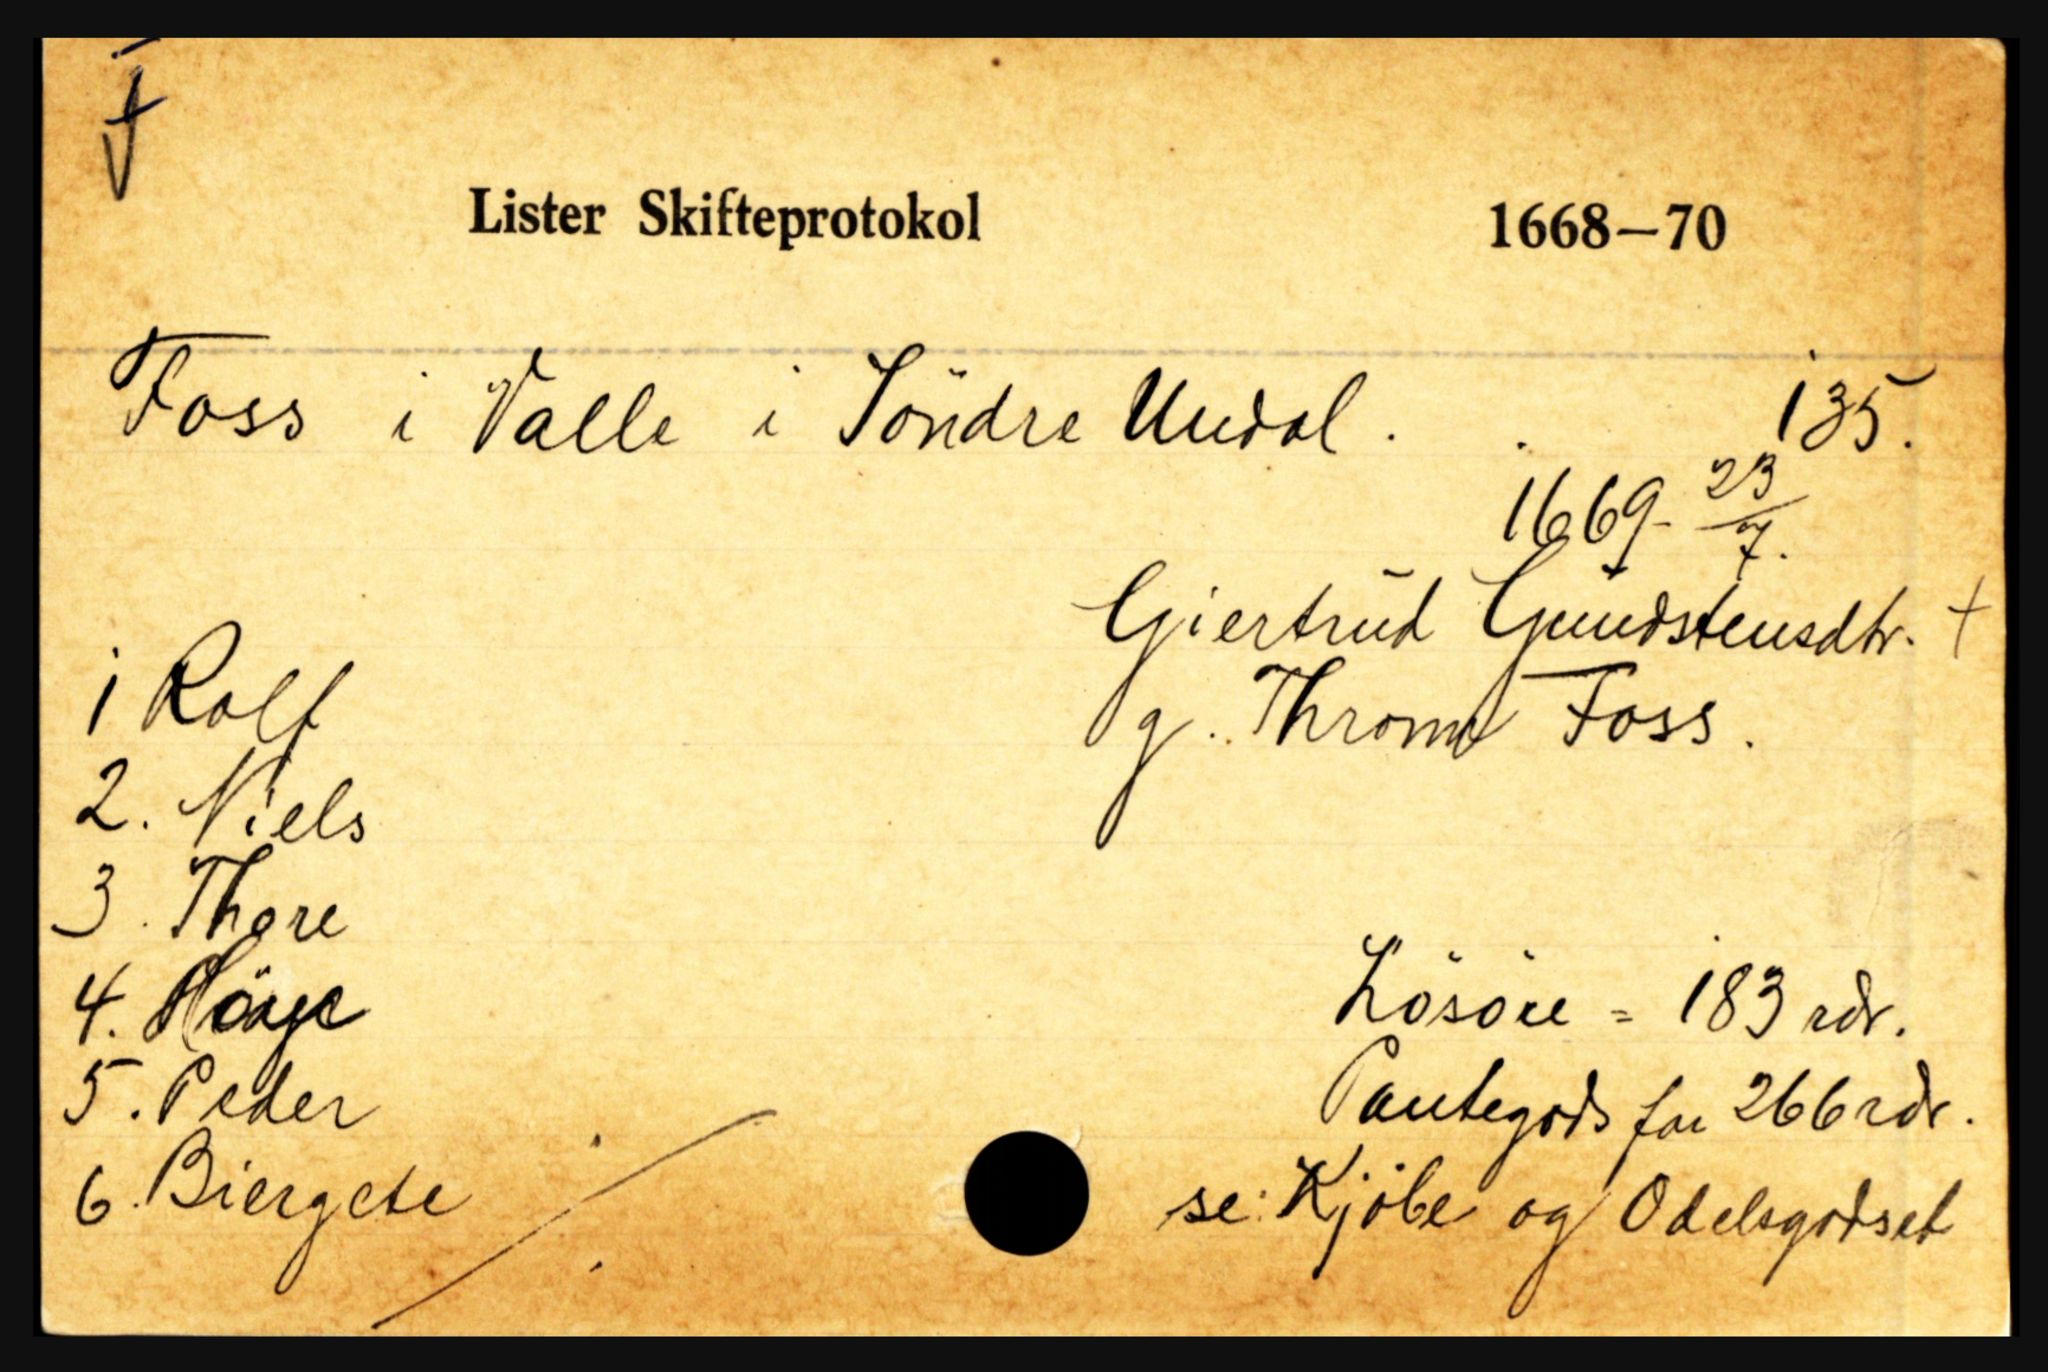 F
Lister Skifteprotokol 1668—70
Foss i Valle i Söndre Undal. 135.
1669 - 23/7.
Giertrud Gundstensdtr. +
g. Thrond Foss.
1 Rolf
2. Niels
3. Thore
4. Höye
5. Peder
6. Biergete
Lösöre = 183 rdr.
Pantegods for 266 rdr.
se: Kjöbe og Odelsgodset